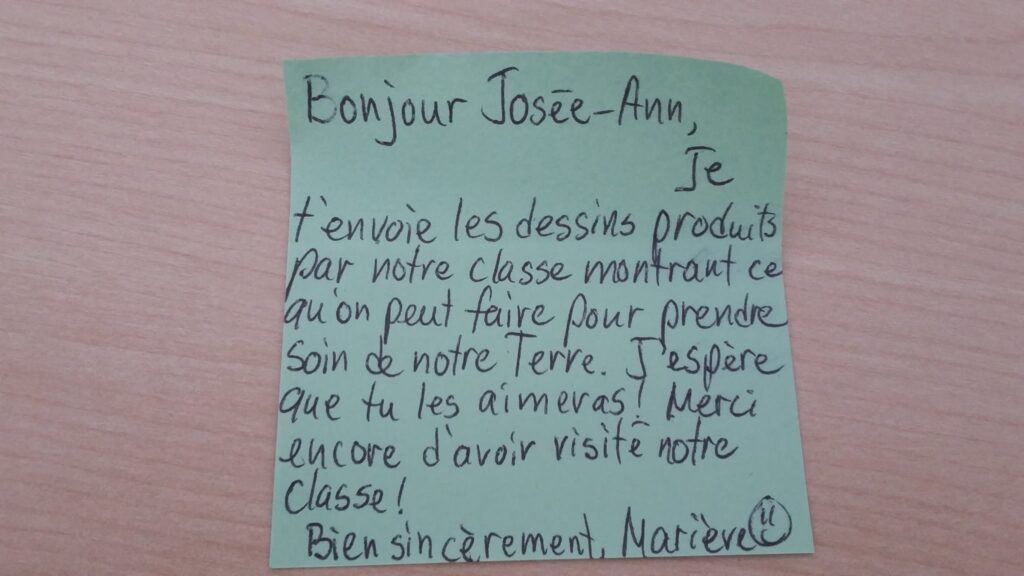 Bonjour Josée-Ann,
Je
t'envoie les dessins produits
par notre classe montrant ce
qu'on peut faire pour prendre
soin de notre Terre. J'espère
que tu les aimeras! Merci
encore d'avoir visité notre
classe!
Bien sincèrement, Mariève